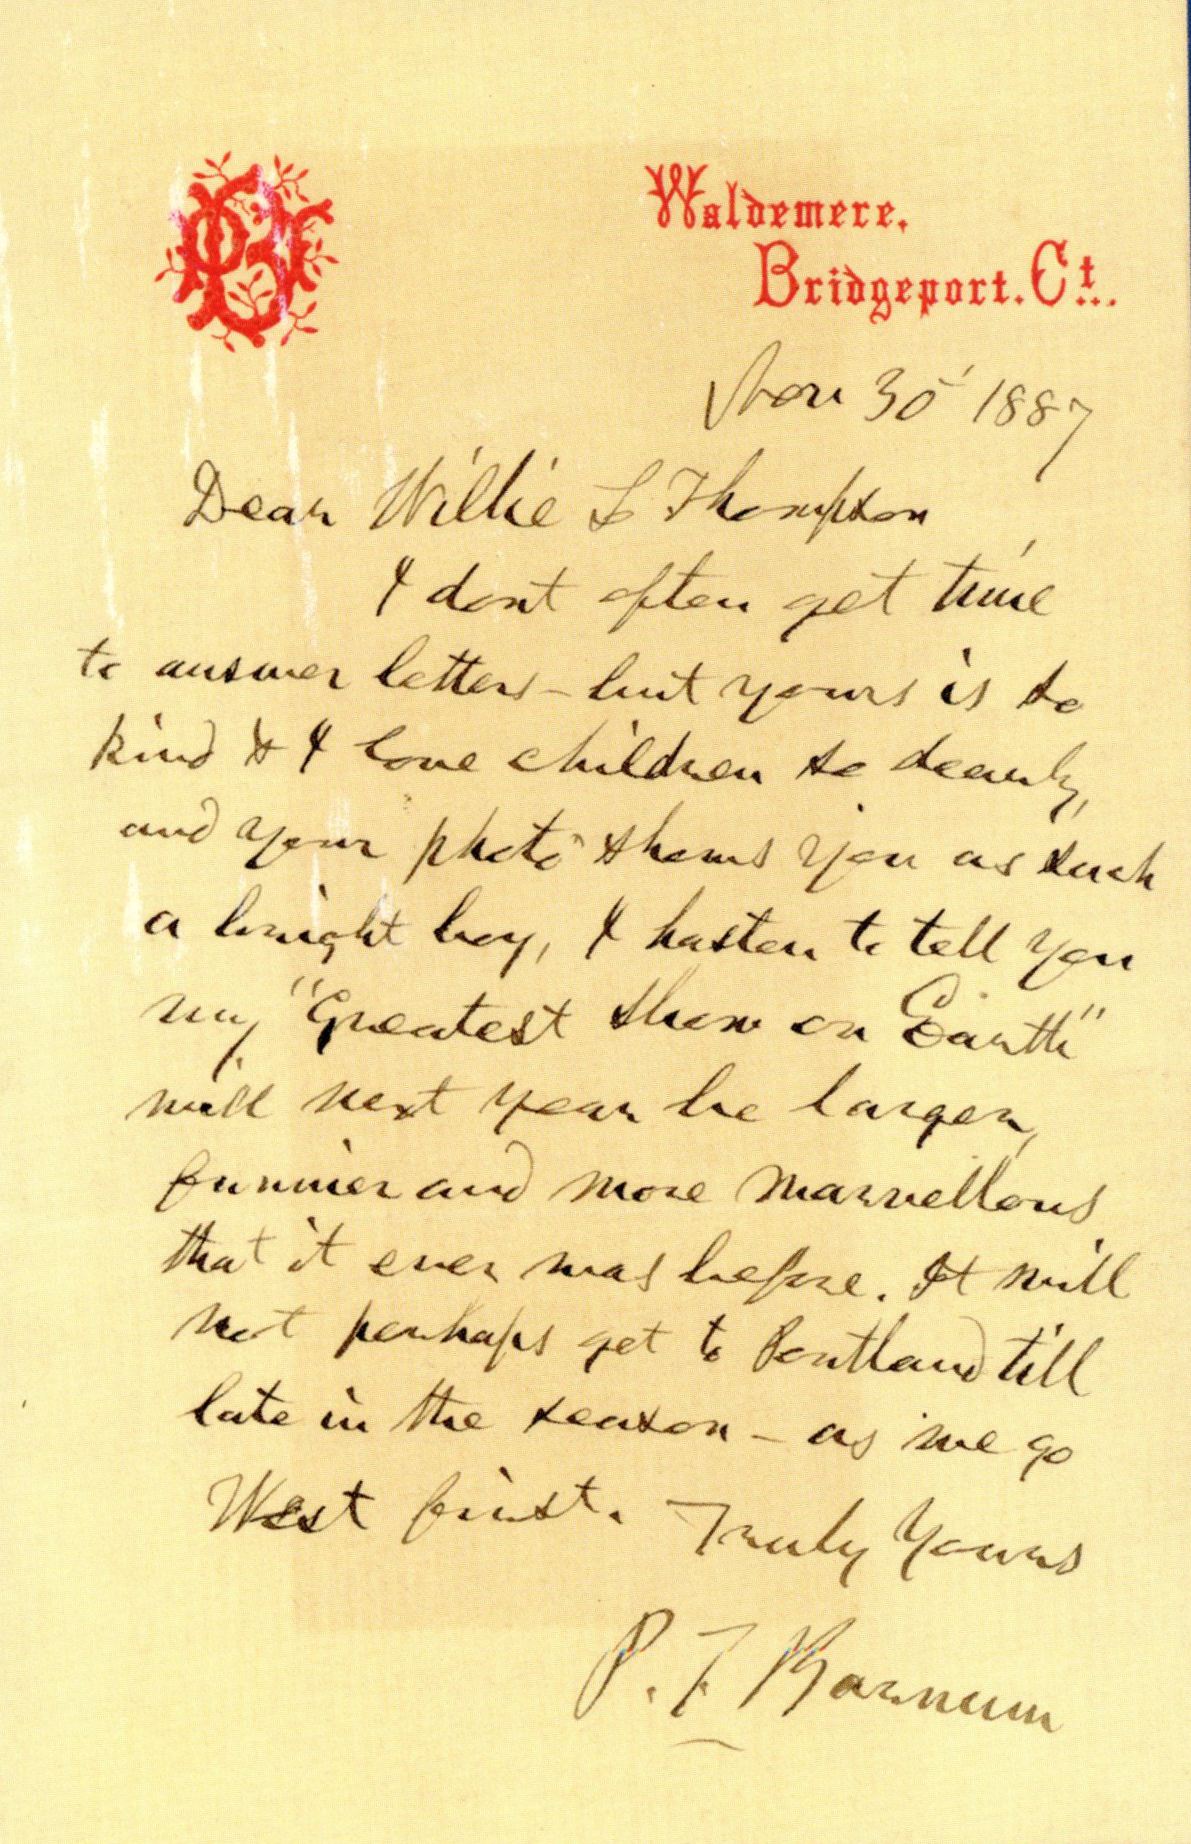 PTB
Waldemere,
Bridgeport. Ct.
Nov 30 1887
Dear Willie L Thompson
I dont often get time
to answer letters - but yours is so
kind & I love children so dearly,
and your photo shows you as such
a bright boy, I hasten to tell you
my "Greatest Show on Earth"
will next year be larger,
funnier and more marvellous
that it ever was before. It will
not perhaps get to Portland till
late in the season - as we go
West first. Truly Yours
P. T. Barnum